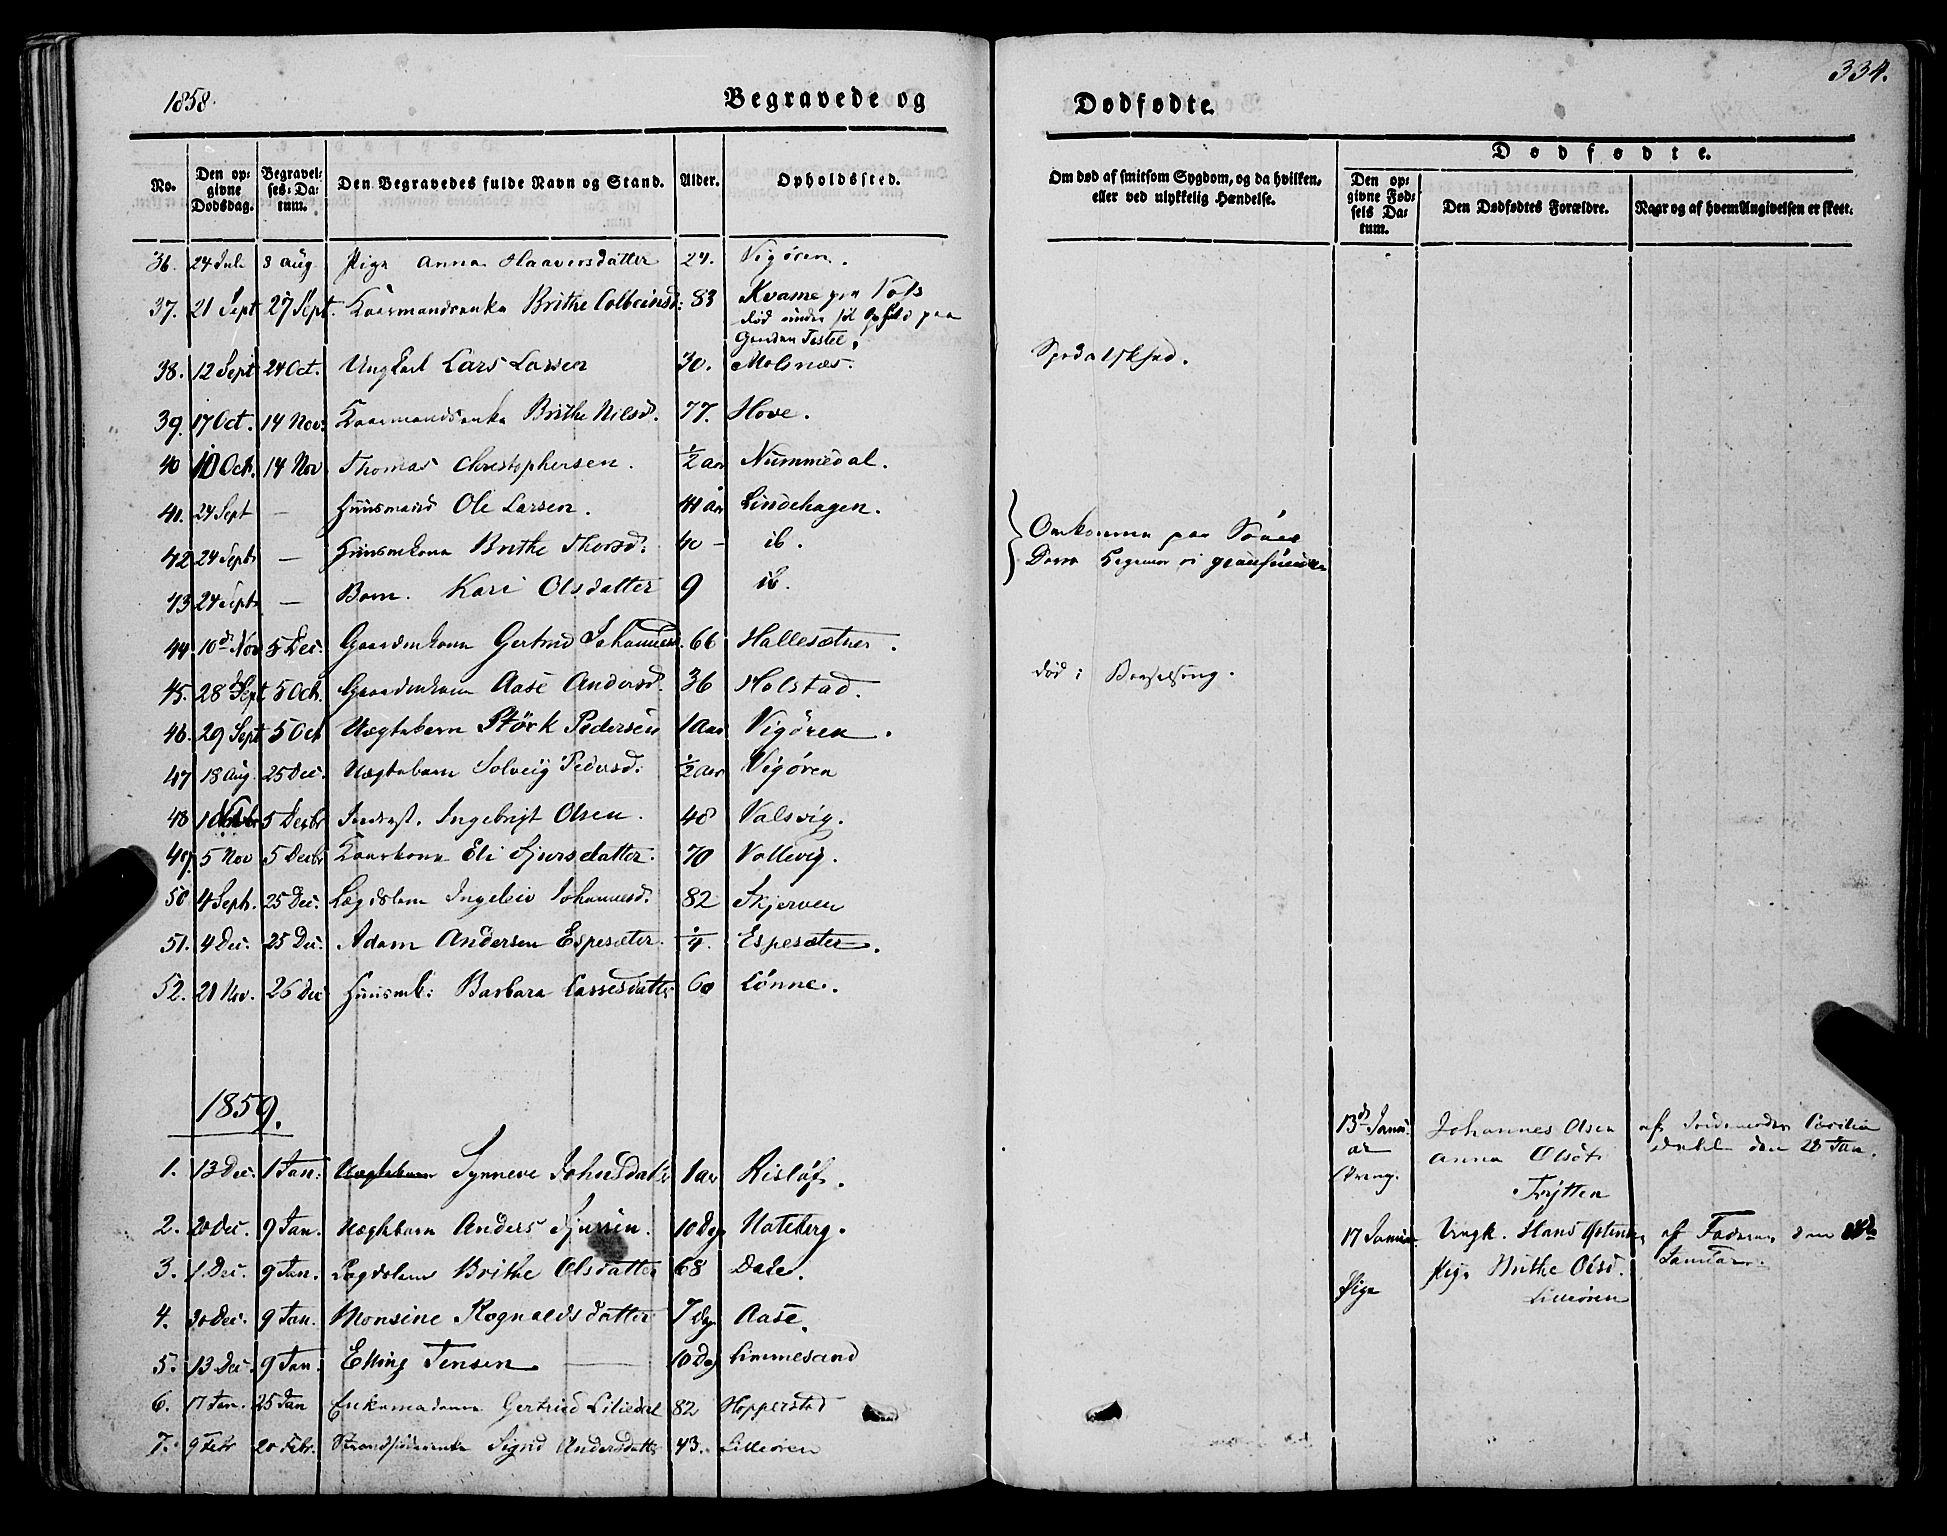 1858.
Begravede og
Dødfødte.
334.
No.
Den opgivne Dødsdag.
Begravelses-Datum.
Den Begravedes fulde Navn og Stand.
Alder.
Opholdssted.
Om død af smitsom Sygdom, og da hvilken, eller ved ulykkelig Hændelse.
Dødfødte.
Den opgivne Fødsels Datum.
Den Dødfødtes Forældre.
Naar og af hvem Angivelsen er skeet.
36. 24 Juli 8 Aug Pige Anna Haaversdatter 24. Vigøren.
37. 21 Sept 27 Sept. Brithe Colbeinsd: 83 Kvame paa
død under sit paa
Gaarden
38. 12 Sept 24 Oct. Ungkarl Lars Larsen 30. Molsnæs.
39. 17 Oct. 14 Nov. Brithe Nilsd. 77. Hove.
40 10 Oct. 14 Nov Thomas Christophersen. ½ aar Nummedal.
41. 24 Sept — Huusmand Ole Larsen. 44 Aar Lindehagen.
42 24 Septr — Huusmkona Brithe Thorsd: 40 - ib.
Omkomne paa
43 24 Septr — Barn. Kari Olsdatter 9 ib.
44 10d Nov 5 Dec. Gaardmkona Gertrud Johannesd. 66 Hallesætner.
45. 28 Sept 5 Oct. Gaardmkona Aase Andersd. 36 Holstad. død i Barselseng.
46. 29 Sept 5 Oct Uægtebarn Størk Pedersen 1 Aar Vigøren.
47 18 Aug. 25 Dec. Uægtebarn Solveig Pedersd: ½ aar Vigøren
48 5 Decbr Inderst. Ingebrigt Olsen. 48 Valsvig.
49. 5 Nov 5 Decbr Eli Sjursdatter. 70 Vollevig.
50 4 Sept. 25 Dec. Lægdslem Ingeleiv Johannesd. 82 Skjerven
51. 4 Dec. 25 Dec. Adam Andersen Espesæter. ¼. Espesæter.
52. 21 Nov. 26 Dec Huusmk: Barbara Lassesdatter 60 Lønne.
1859.
1. 13 Dec. 1 Jan. Uægtebarn Synneve Johnsdatter 1 aar Risløf.
13d Januar
Dreng.
Johannes Olsen
Anna Olsdt
Trytten
af Jordemoder Cecilia
den 28 Jan.
2. 20 Dec. 9 Jan. Uægtebarn Anders 10 Dag Hateberg.
17 Januar
Pige
Ungk. Hans
Pige Brithe Olsd.
Lilleøren
af Faderen den
Januar.
3. 1 Dec. 9 Jan. Lægdslem Brithe Olsdatter 68 Dale.
4. 30 Dec. 9 Jan. Monsine Rognaldsdatter 7 Dag Aase.
5. 13 Dec. 9 Jan. Elling Jensen — 10 Dag Limmesand
6. 17 Jan. 25 Jan Enkemadame Gertrud Liliedal 82 Hopperstad
7. 9 Febr 20 Febr. Sigrid Andersdatter 43. Lilleøren